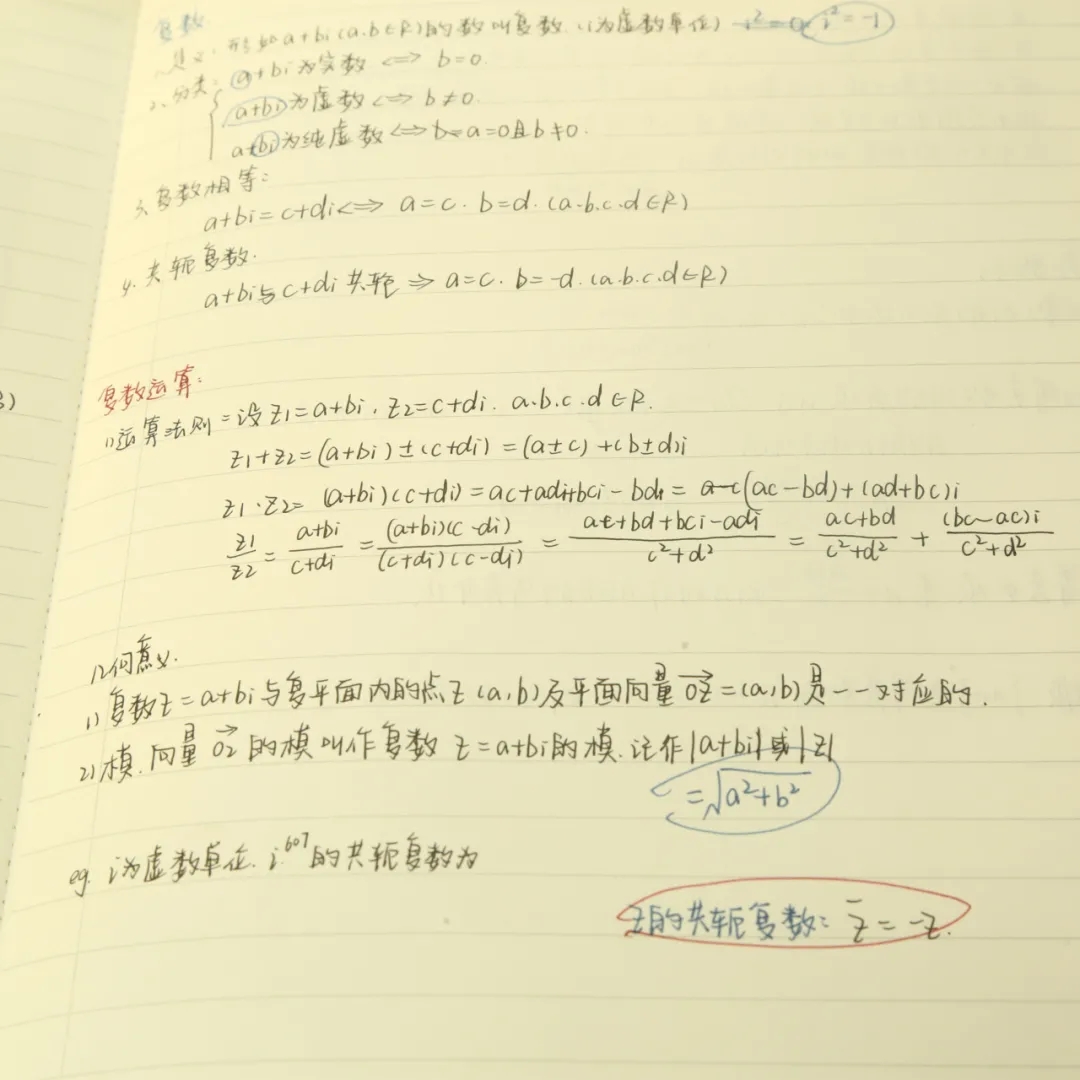 复数
1、定义：形如a+bi(a.b∈R)的数叫复数.(i为虚数单位) i²=0 i²=-1
2、分类：a+bi为实数 <=> b=0.
a+bi为虚数 <=> b≠0.
a+bi为纯虚数 <=> b=a=0且b≠0.
3、复数相等：
a+bi=c+di <=> a=c. b=d. (a.b.c.d∈R)
4. 共轭复数.
a+bi与c+di共轭 => a=c. b=-d. (a.b.c.d∈R)
3)
复数运算：
1)运算法则=设z1=a+bi, z2=c+di. a.b.c.d∈R.
z1+z2=(a+bi)±(c+di)=(a±c)+(b±d)i
z1·z2= (a+bi)(c+di)=ac+adi+bci-bd= a-c(ac-bd)+(ad+bc)i
z1/z2 = a+bi/c+di = (a+bi)(c-di)/(c+di)(c-di) = ac+bd+bci-adi/c²+d² = ac+bd/c²+d² + (bc-ac)i/c²+d²
几何意义.
1) 复数z=a+bi与复平面内的点Z(a,b)及平面向量OZ=(a,b)是一一对应的.
2)模.向量OZ的模叫作复数z=a+bi的模.记作|a+bi|或|z|
=√a²+b²
eg. i为虚数单位. i⁶⁰⁷的共轭复数为
z的共轭复数： z̄=-z.